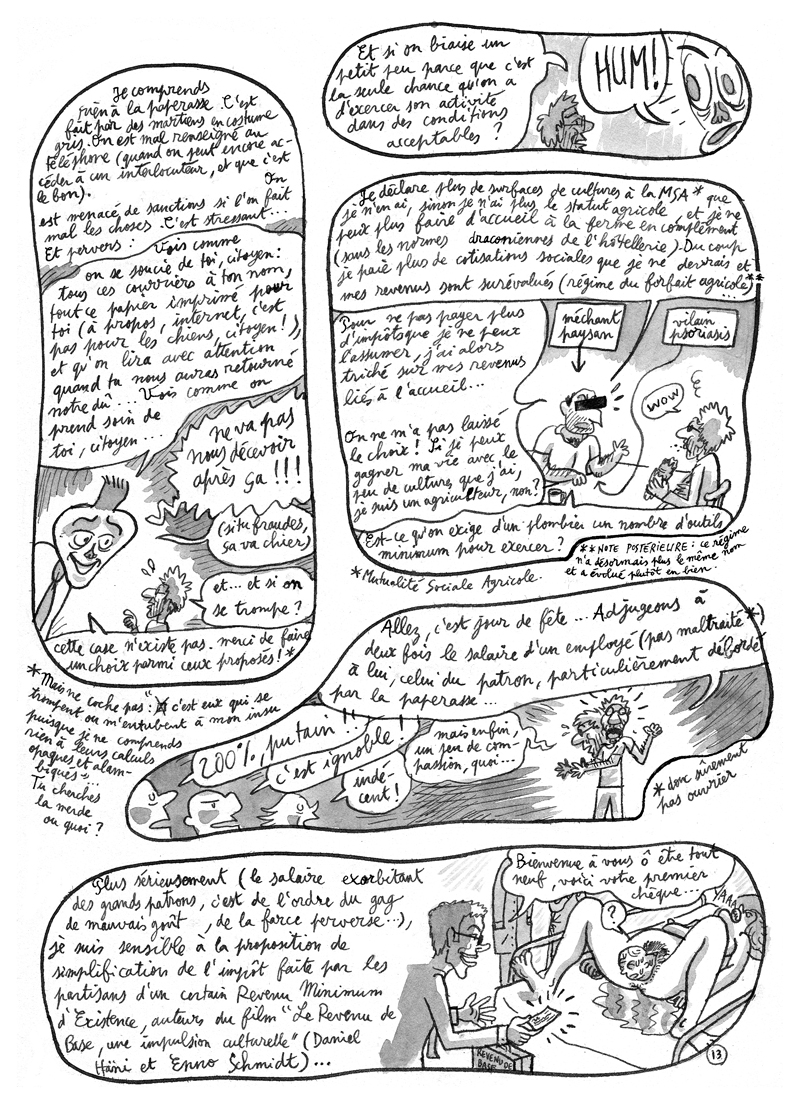 Je comprends
rien à la paperasse. C'est
fait par des martiens en costume
gris. On est mal renseigné au
téléphone (quand on peut encore ac-
céder à un interlocuteur, et que c'est
le bon). On
est menacé de sanctions si l'on fait
mal les choses. C'est stressant...
Et pervers :
Vois comme
on se soucie de toi, citoyen:
tous ces courriers à ton nom,
tout ce papier imprimé pour
toi (à propos, internet, c'est
pas pour les chiens, citoyen!),
et qu'on lira avec attention
quand tu nous auras retourné
notre dû... Vois comme on
prend soin de
toi, citoyen...
ne va pas
nous décevoir
après ça!!!
(si tu fraudes,
ça va chier)
et... et si on
se trompe?
cette case n'existe pas. merci de faire
un choix parmi ceux proposés! *
* Mais ne coche pas
c'est eux qui se
trompent ou m'entubent à mon insu
puisque je ne comprends
rien à leurs calculs
opaques et alam-
biqués
Tu cherches
la merde
ou quoi?
Et si on biaise un
petit peu parce que c'est
la seule chance qu'on a
d'exercer son activité
dans des conditions
acceptables?
HUM!
Je déclare plus de surfaces de cultures à la MSA* que
je n'en ai, sinon je n'ai plus le statut agricole, et je ne
peux plus faire d'accueil à la ferme en complément
(sans les normes draconiennes de l'hôtellerie). Du coup
je paie plus de cotisations sociales que je ne devrais et
mes revenus sont surévalués (régime du forfait agricole)**
Pour ne pas payer plus
d'impôts que je ne peux
l'assumer, j'ai alors
triché sur mes revenus
liés à l'accueil...
On ne m'a pas laissé
le choix! Si je peux
gagner ma vie avec le
peu de cultures que j'ai,
je suis un agriculteur, non?
méchant
paysan
vilain
psoriasis
WOW
Est-ce qu'on exige d'un plombier un nombre d'outils
minimum pour exercer?
* Mutualité Sociale Agricole.
** NOTE POSTÉRIEURE: ce régime
n'a désormais plus le même nom
et a évolué plutôt en bien.
Allez, c'est jour de fête... Adjugeons à
deux fois le salaire d'un employé (pas maltraité*)
à lui, celui du patron, particulièrement débordé
par la paperasse...
200%, putain...!!
c'est ignoble!
indé-
cent!
mais enfin,
un peu de com-
passion, quoi...
* donc sûrement
pas ouvrier
Plus sérieusement (le salaire exorbitant
des grands patrons, c'est de l'ordre du gag
de mauvais goût, de la farce perverse...),
je suis sensible à la proposition de
simplification de l'impôt faite par les
partisans d'un certain Revenu Minimum
d'Existence, auteurs du film "Le Revenu de
Base, une impulsion culturelle" (Daniel
Häni et Enno Schmidt)...
Bienvenue à vous ô être tout
neuf, voici votre premier
chèque...
?
YAA
REVENU DE
BASE
13